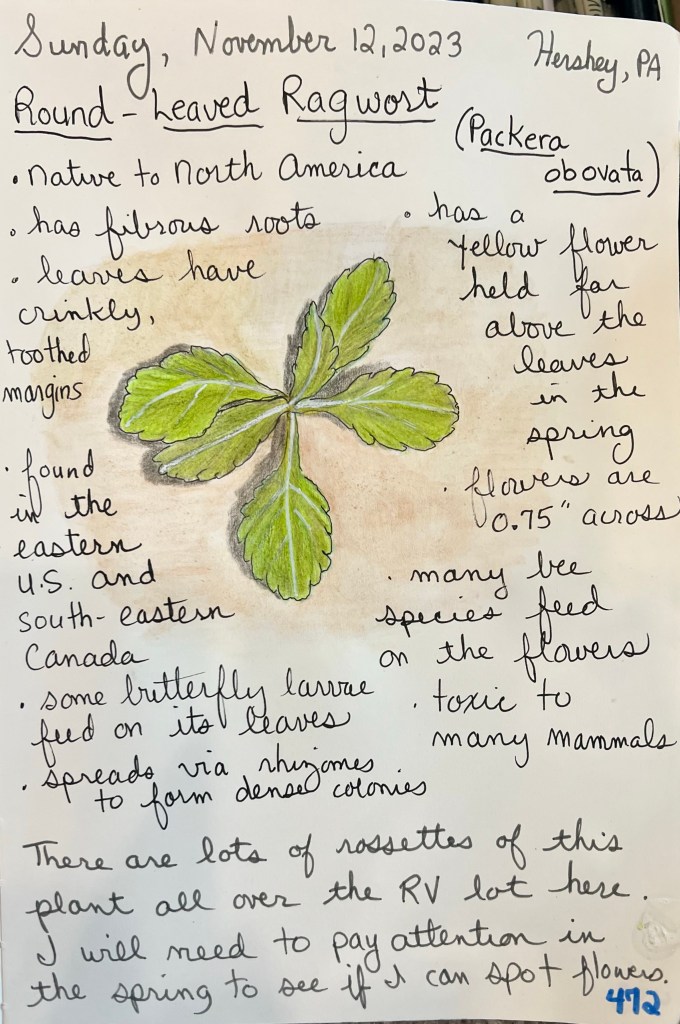 Sunday, November 12, 2023
Hershey, PA
Round-Leaved Ragwort
(Packera
obovata)
• native to North America
• has fibrous roots
• leaves have
crinkly,
toothed
margins
• found
in the
eastern
U.S. and
south-eastern
Canada
• some butterfly larvae
feed on its leaves
• spreads via rhizomes
to form dense colonies
• has a
yellow flower
held far
above the
leaves
in the
spring
• flowers are
0.75" across
• many bee
species feed
on the flowers
• toxic to
many mammals
There are lots of rossettes of this
plant all over the RV lot here.
I will need to pay attention in
the spring to see if I can spot flowers.
472